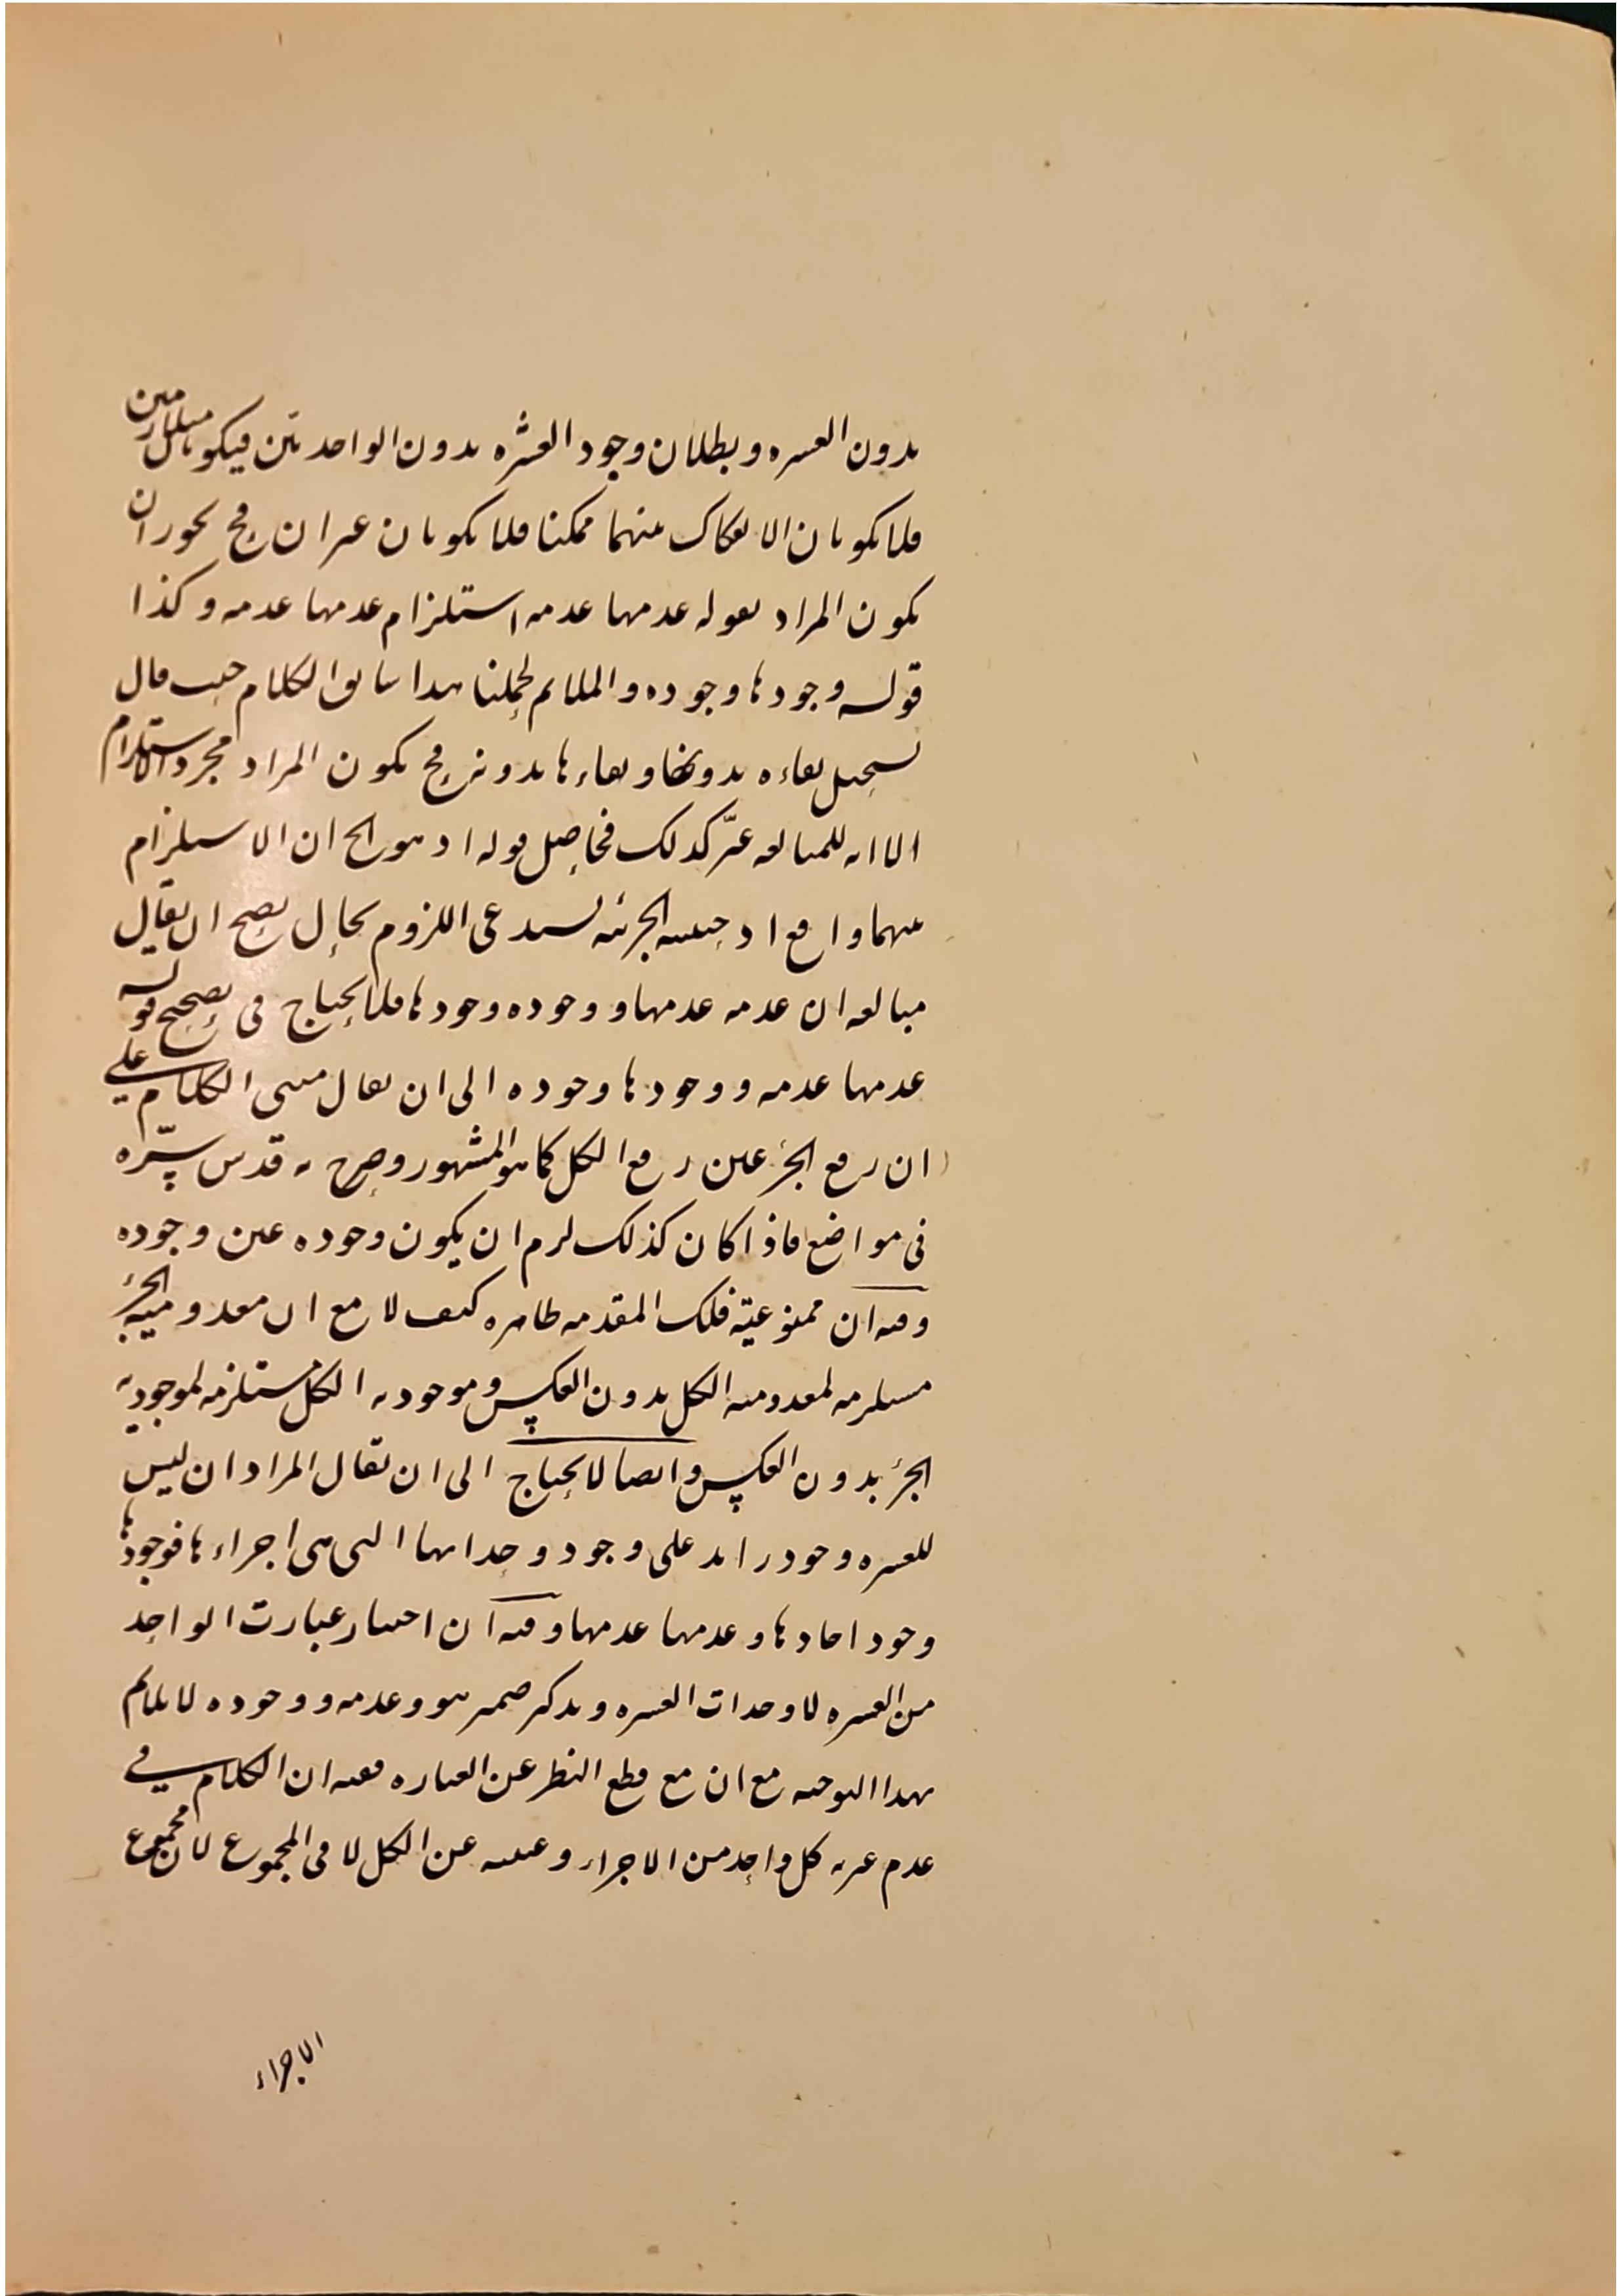 بدون العشره وبطلان وجود العشره بدون الواحد بين فيكونان متلازمين
فلا يكونان الانفكاك بينهما ممكنا فلا يكونان غيران فح يجوز ان
يكون المراد بقوله عدمها عدمه استلزام عدمها عدمه وكذا
قوله وجودها وجوده والملايم لحملنا هذا سابق الكلام حيث قال
يستحيل بقاءه بدونها وبقاءها بدونه فح يكون المراد مجرد الاستلزام
الا انه للمبالغه عبّر كذلك فحاصل قوله اذ هو الخ ان الاستلزام
بينهما واقع اذ حيثيه الجزئيه تستدعى اللزوم بحال يصح ان يقال
مبالغه ان عدمه عدمها ووجوده وجودها فلا يحتاج فى تصحيح قوله
عدمها عدمه ووجودها وجوده الى ان يقال مبنى الكلام على
ان رفع الجزء عين رفع الكل كما هو المشهور وصرح به قدس سرّه
فى مواضع فاذا كان كذلك لزم ان يكون وجوده عين وجوده
وفيه ان ممنوعيّة تلك المقدمه ظاهره كيف لا مع ان معدوميّة الجزء
مستلزمه لمعدوميه الكل بدون العكس وموجوديه الكل مستلزمه لموجوديه
الجزء بدون العكس وايضا لا يحتاج الى ان يقال المراد ان ليس
للعشره وجود زايد على وجود وحداتها التى هى اجزاءها فوجودها
وجود احادها وعدمها عدمها وفيه ان اختيار عبارت الواحد
من العشره لا وحدات العشره وتذكير ضمير هو وعدمه ووجوده لا يلايم
بهذا التوجيه مع ان مع قطع النظر عن العباره ففيه ان الكلام في
عدم غيريه كل واحد من الاجزاء وعينيه عن الكل لا فى المجموع لان مجموع
الاجزاء